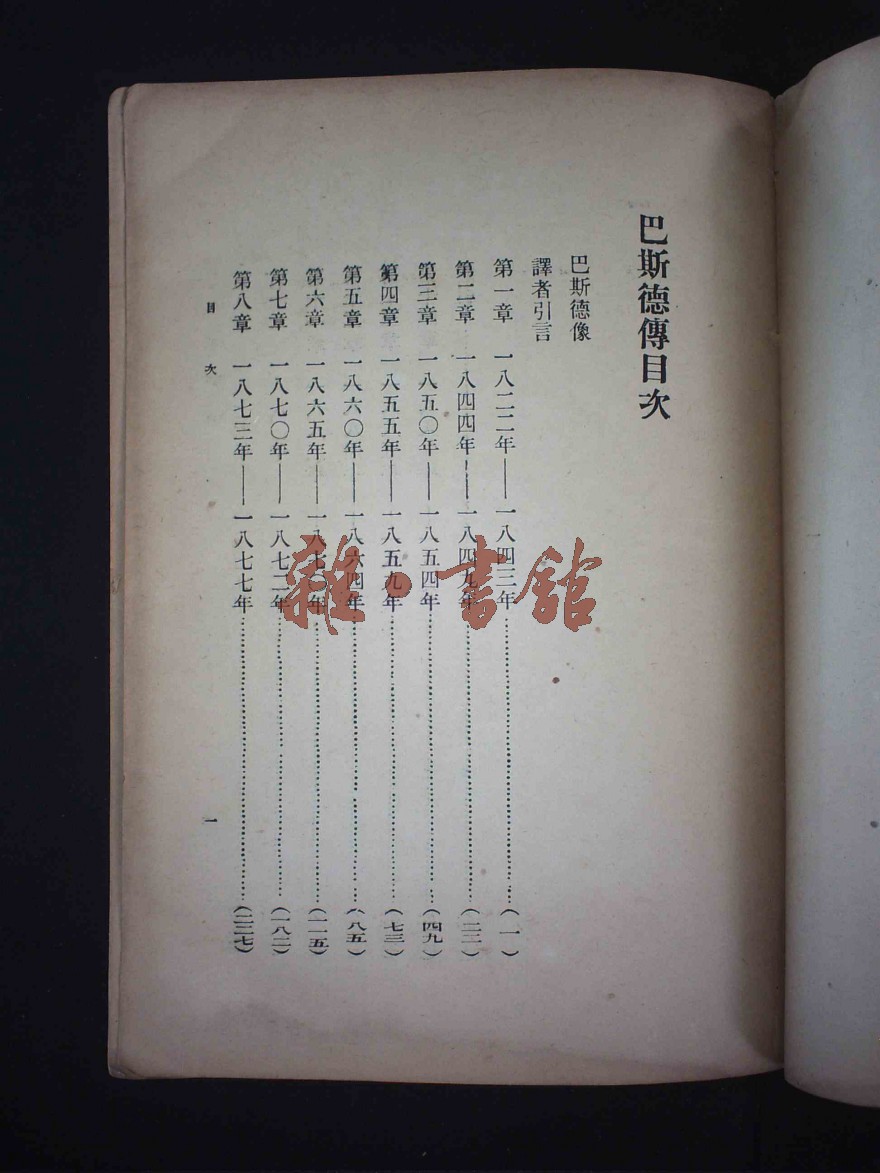 巴斯德傳目次
巴斯德像
譯者引言
第一章 一八二二年——一八四三年……(一)
第二章 一八四四年——一八四九年……(二二)
第三章 一八五〇年——一八五四年……(四九)
第四章 一八五五年——一八五九年……(七三)
第五章 一八六〇年——一八六四年……(八五)
第六章 一八六五年——一八七〇年……(一一五)
第七章 一八七〇年——一八七二年……(一八二)
第八章 一八七三年——一八七七年……(二二七)
目次 一
雜·書館